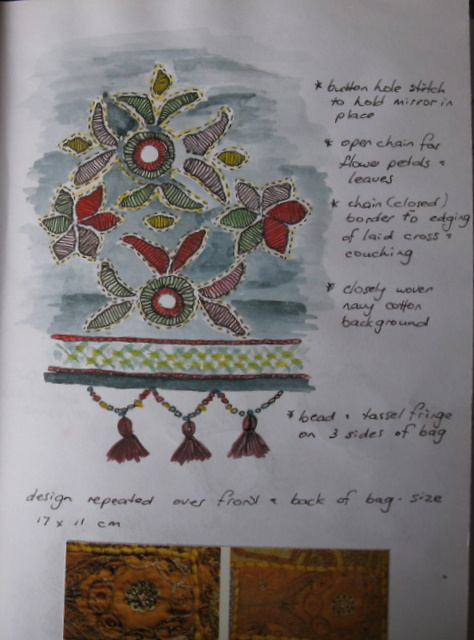 * button hole stitch
to hold mirror in
place
* open chain for
flower petals &
leaves
* chain (closed)
border to edging
of laid cross &
couching
* closely woven
navy cotton
background
* bead & tassel fringe
on 3 sides of bag
design repeated over front & back of bag - size
17 x 11 cm